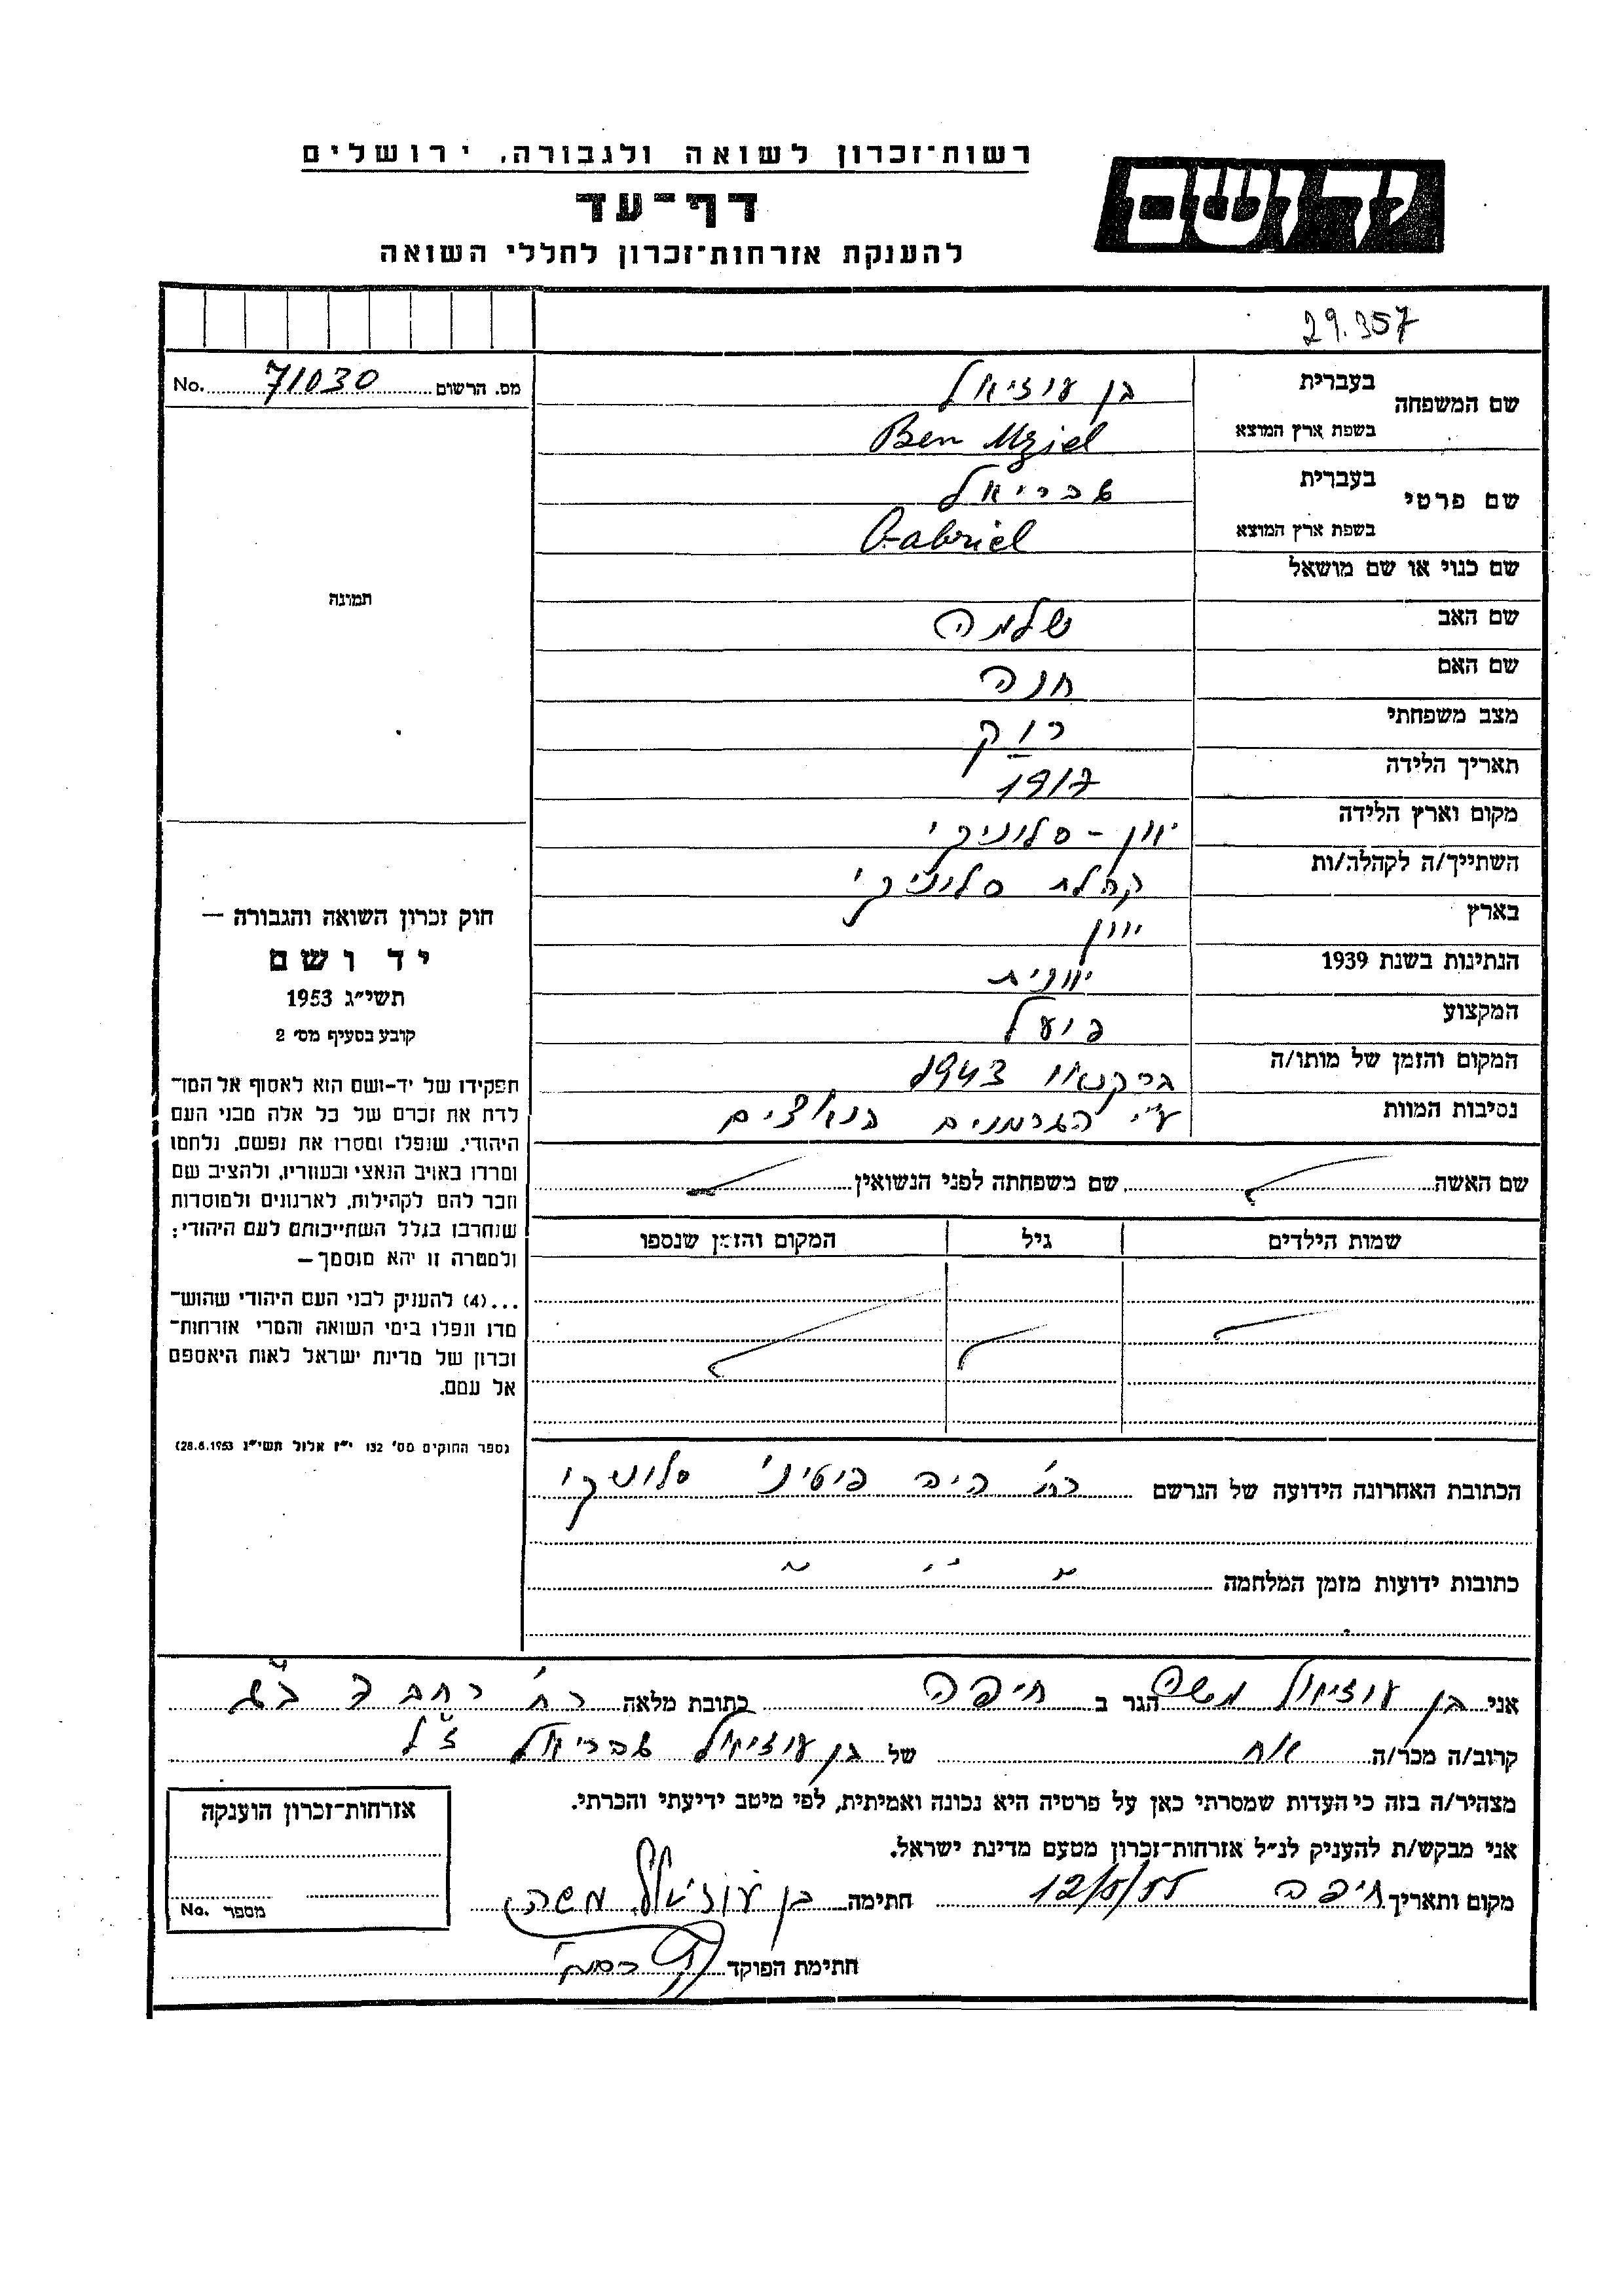 רשות־זכרון לשואה ולגבורה, ירושלים
יד ושם
דף־עד
להענקת אזרחות־זכרון לחללי השואה
29.357
מס. הרשום 71030 No.
שם המשפחה
בעברית בן עוזיאל
בשפת ארץ המוצא Ben Uziel
שם פרטי
בעברית גבריאל
בשפת ארץ המוצא Gabriel
שם כנוי או שם מושאל
שם האב שלמה
שם האם חנה
מצב משפחתי רווק
תאריך הלידה 1917
מקום וארץ הלידה יוון - סלוניקי
השתייך/ה לקהלה/ות קהלת סלוניקי
בארץ יוון
הנתינות בשנת 1939 יוונית
המקצוע פועל
המקום והזמן של מותו/ה בירקנאו 1943
נסיבות המוות ע"י הגרמנים הנאצים
שם האשה
שם משפחתה לפני הנשואין
שמות הילדים גיל המקום והזמן שנספו
הכתובת האחרונה הידועה של הנרשם רח' היה סלוניקי
כתובות ידועות מזמן המלחמה " " "
תמונה
חוק זכרון השואה והגבורה —
יד ושם
תשי״ג 1953
קובע בסעיף מס׳ 2
תפקידו של יד־ושם הוא לאסוף אל המו־
לדת את זכרם של כל אלה מבני העם
היהודי, שנפלו ומסרו את נפשם, נלחמו
ומרדו באויב הנאצי ובעוזריו, ולהציב שם
וזכר להם לקהילות, לארגונים ולמוסדות
שנחרבו בגלל השתייכותם לעם היהודי;
ולמטרה זו יהא מוסמך—
...(4) להעניק לבני העם היהודי שהוש־
מדו ונפלו בימי השואה והמרי אזרחות־
זכרון של מדינת ישראל לאות היאספם
אל עמם.
(ספר החוקים מס׳ 132 י״ז אלול תשי״ג 28.8.1953)
אני בן עוזיאל משה הגר ב חיפה כתובת מלאה רח'
קרוב/ה מכר/ה אח של בן עוזיאל גבריאל ז"ל
מצהיר/ה בזה כי העדות שמסרתי כאן על פרטיה היא נכונה ואמיתית, לפי מיטב ידיעתי והכרתי.
אני מבקש/ת להעניק לנ״ל אזרחות־זכרון מטעם מדינת ישראל.
מקום ותאריך חיפה 12/5/55 חתימה בן עוזיאל משה
חתימת הפוקד
אזרחות־זכרון הוענקה
מספר No.